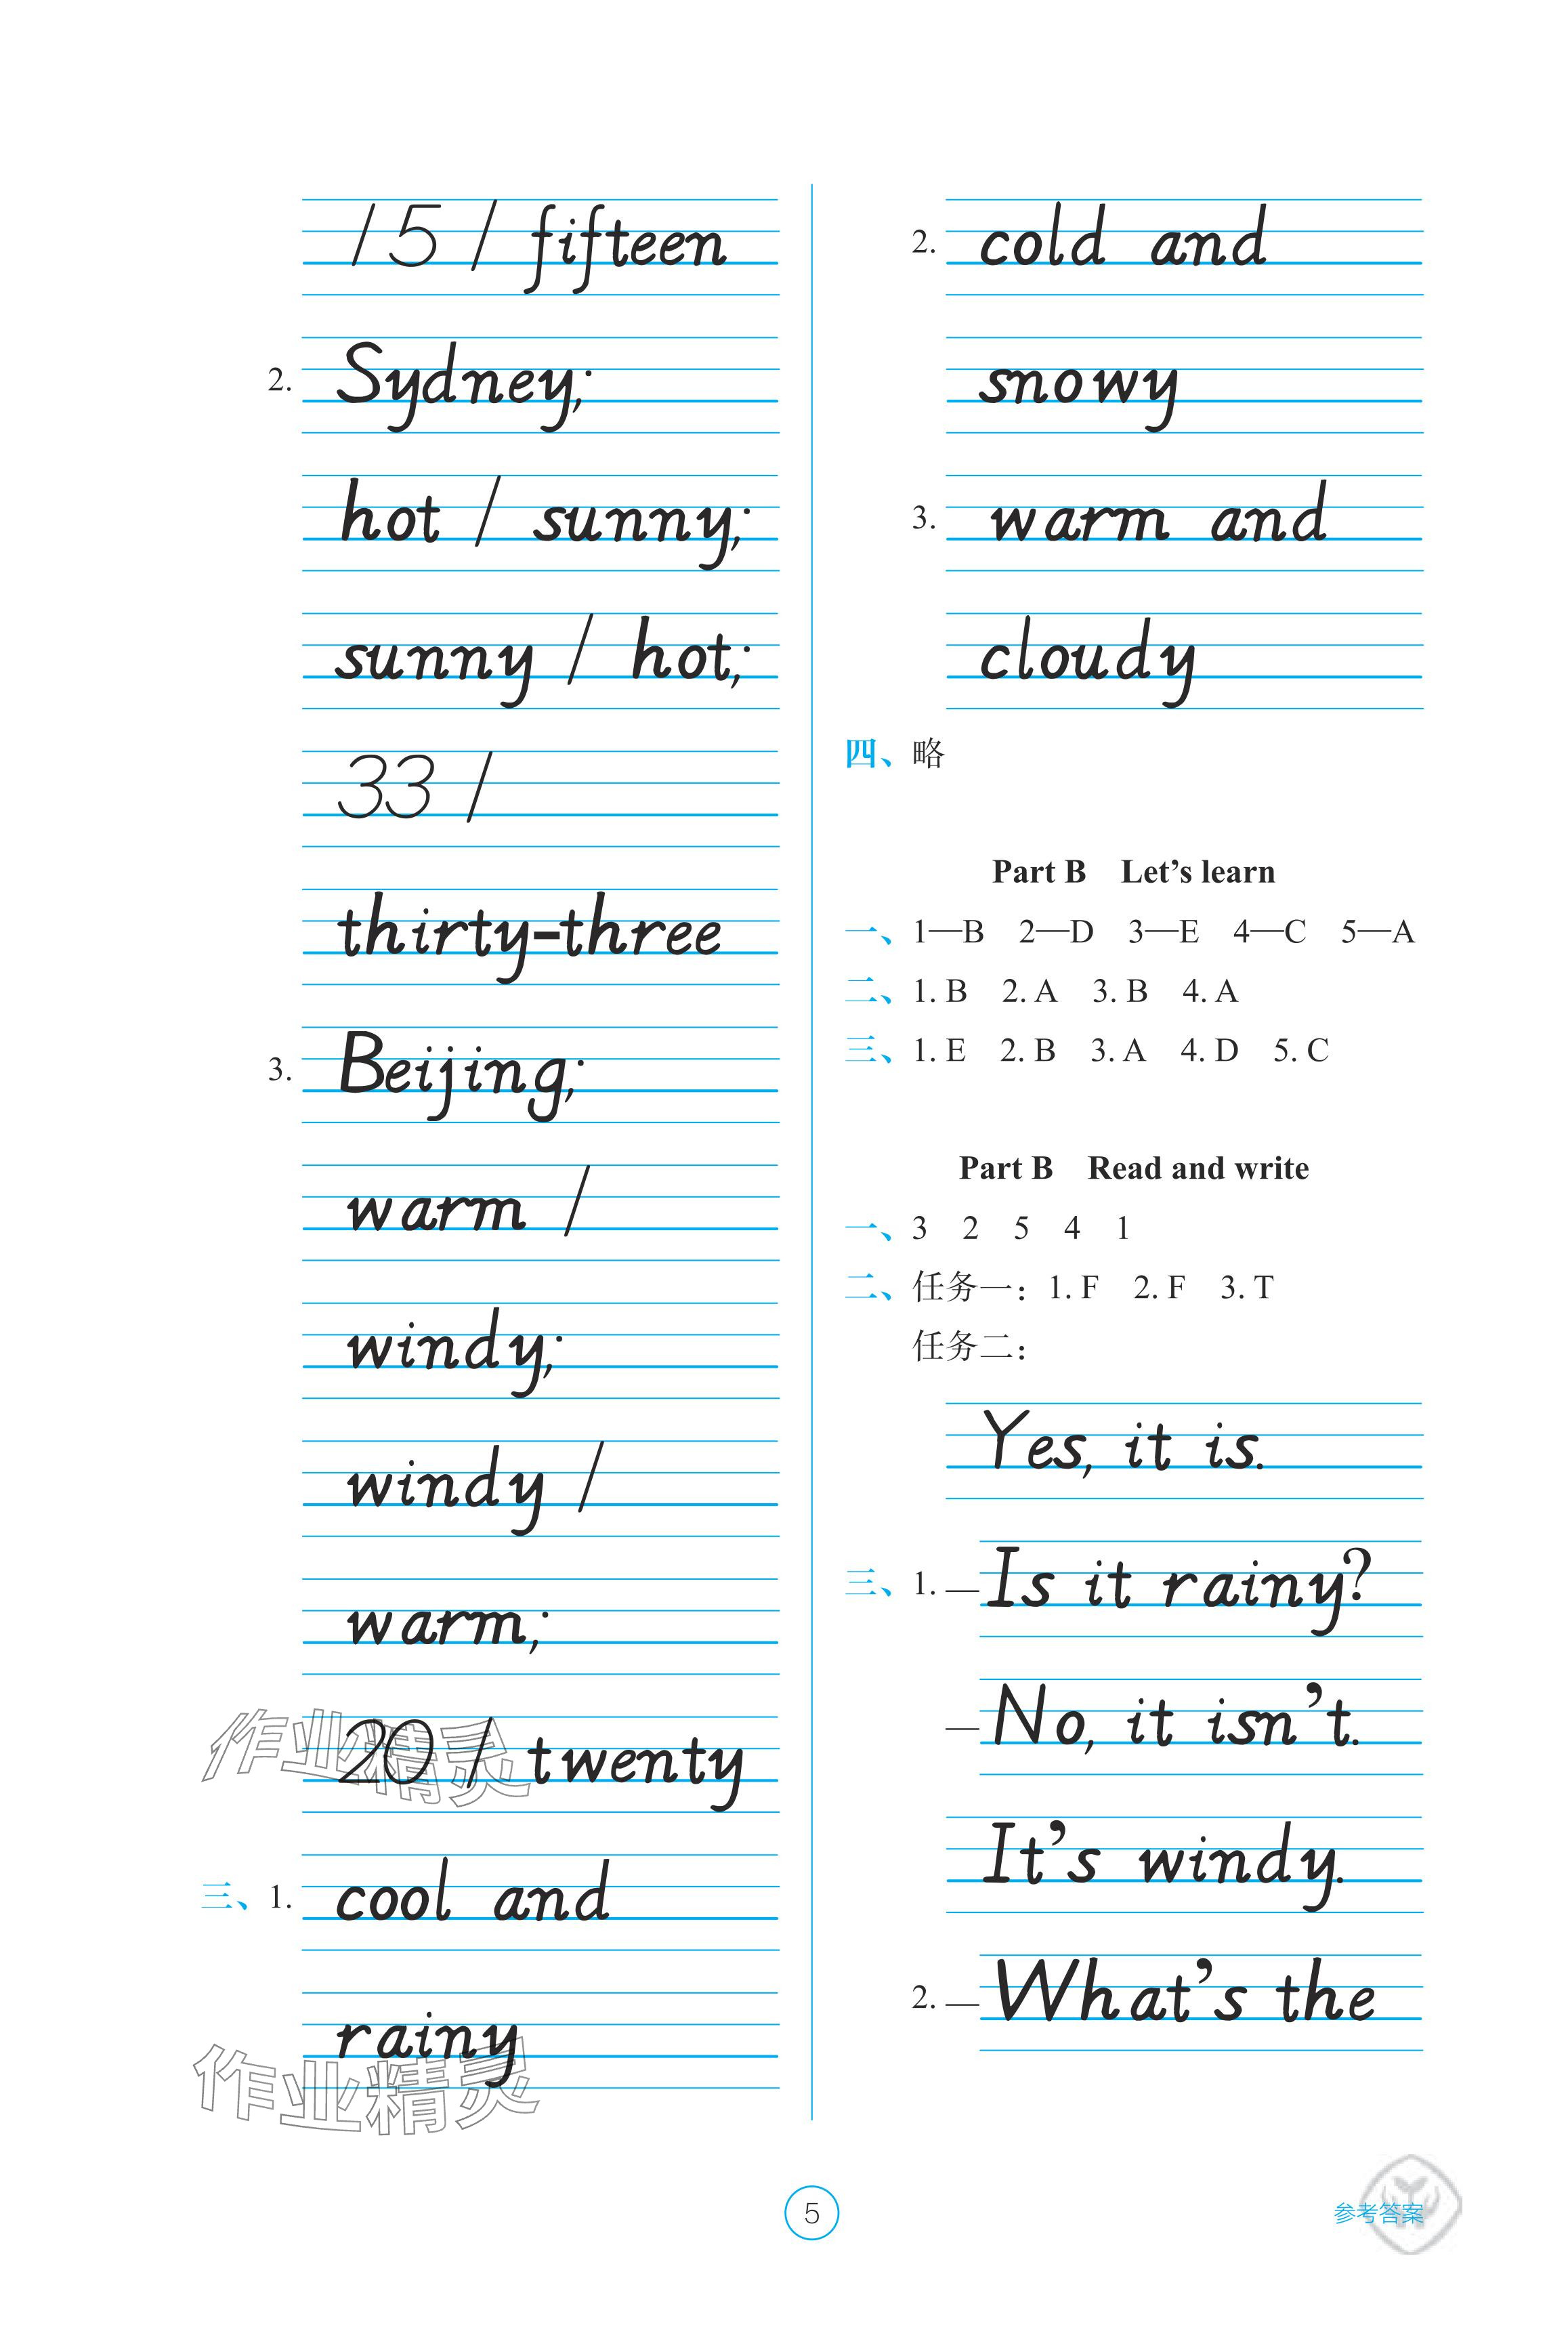 15 / fifteen
2. Sydney;
hot / sunny;
sunny / hot;
33 /
thirty-three
3. Beijing;
warm /
windy;
windy /
warm;
20 / twenty
三、1. cool and
rainy
2. cold and
snowy
3. warm and
cloudy
四、略
Part B Let's learn
一、1—B 2—D 3—E 4—C 5—A
二、1. B 2. A 3. B 4. A
三、1. E 2. B 3. A 4. D 5. C
Part B Read and write
一、3 2 5 4 1
二、任务一：1. F 2. F 3. T
任务二：
Yes, it is.
三、1. —Is it rainy?
—No, it isn't.
It's windy.
2. —What's the
作业精灵
作业精灵
5
参考答案